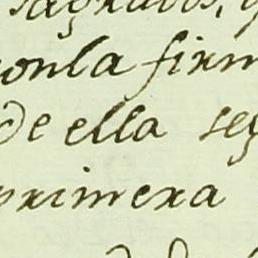 sagrados,
conla firm
de ella seg
primera